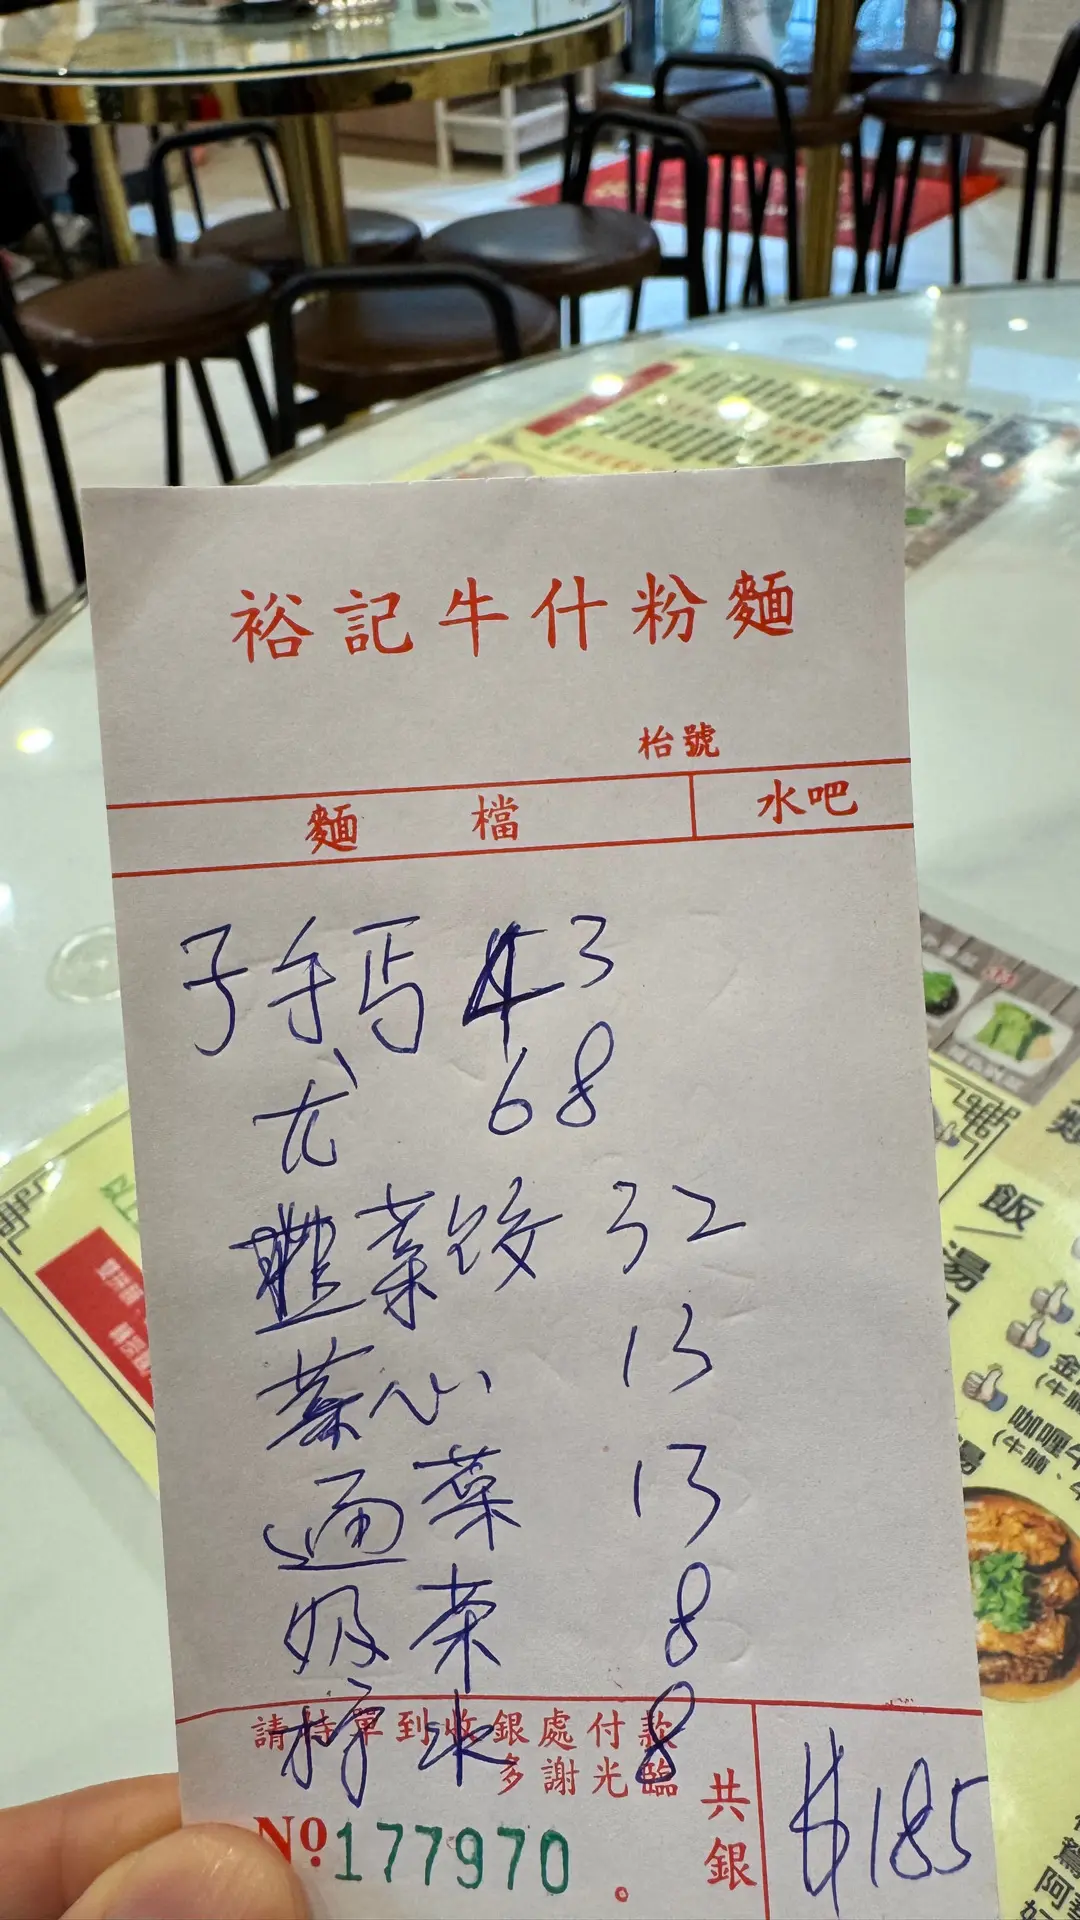 裕記牛什粉麵
枱號
麵檔 水吧
子手丐 43
尤 68
韭菜饺 32
菜心 13
通菜 13
奶茶 8
柠水 8
請持單到收銀處付款
多謝光臨
共銀 $185
Nº 177970
飯
湯